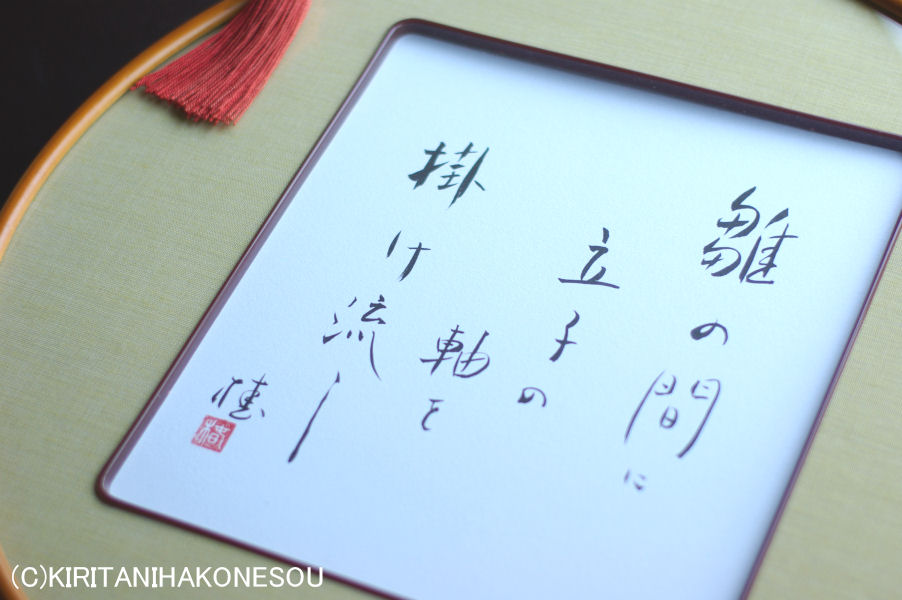 雛の間に
立子の
軸を
掛け流し
椿
椿
(C)KIRITANIHAKONESOU